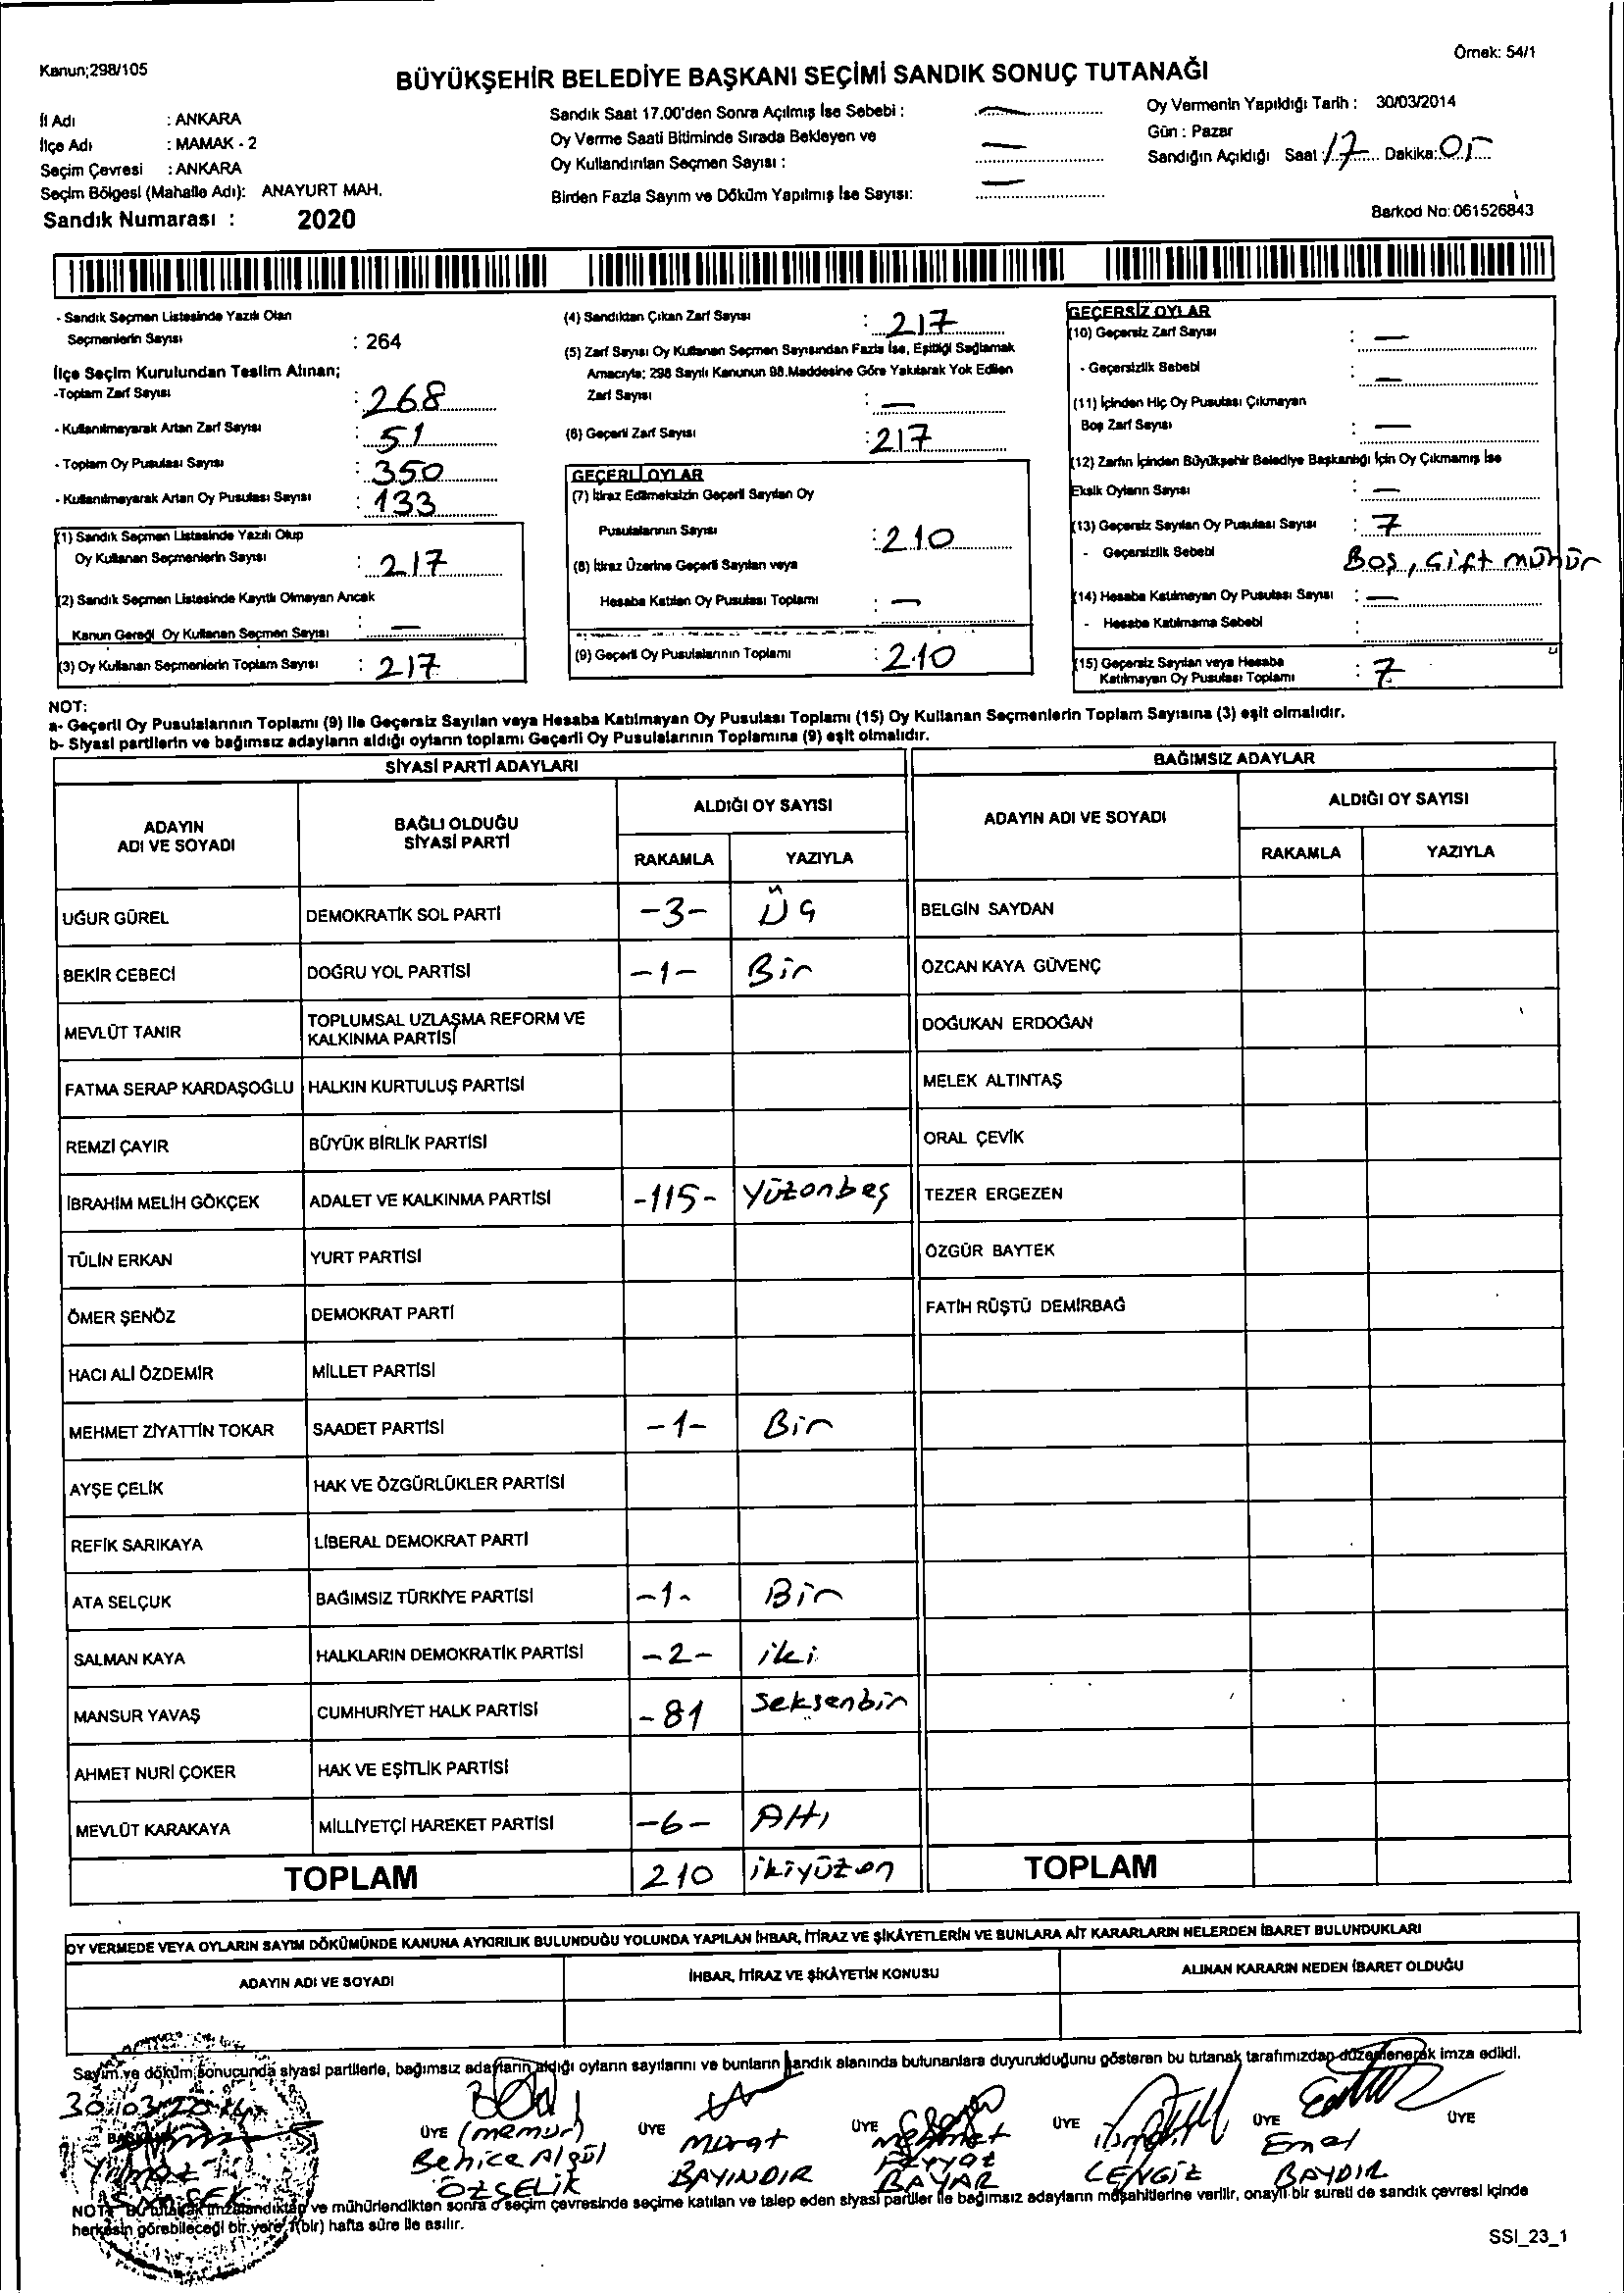 Kanun;298/105
Örnek: 54/1
BÜYÜKŞEHİR BELEDİYE BAŞKANI SEÇİMİ SANDIK SONUÇ TUTANAĞI
İl Adı : ANKARA
İlçe Adı : MAMAK - 2
Seçim Çevresi : ANKARA
Seçim Bölgesi (Mahalle Adı): ANAYURT MAH.
Sandık Numarası : 2020
Sandık Saat 17.00'den Sonra Açılmış İse Sebebi : —
Oy Verme Saati Bitiminde Sırada Bekleyen ve
Oy Kullandırılan Seçmen Sayısı : —
Birden Fazla Sayım ve Döküm Yapılmış İse Sayısı: —
Oy Vermenin Yapıldığı Tarih : 30/03/2014
Gün : Pazar
Sandığın Açıldığı Saat : 17 Dakika: 05
Barkod No: 061526843
- Sandık Seçmen Listesinde Yazılı Olan
Seçmenlerin Sayısı : 264
İlçe Seçim Kurulundan Teslim Alınan;
-Toplam Zarf Sayısı : 268
- Kullanılmayarak Artan Zarf Sayısı : 51
- Toplam Oy Pusulası Sayısı : 350
- Kullanılmayarak Artan Oy Pusulası Sayısı : 133
(1) Sandık Seçmen Listesinde Yazılı Olup
Oy Kullanan Seçmenlerin Sayısı : 217
(2) Sandık Seçmen Listesinde Kayıtlı Olmayan Ancak
Kanun Gereği Oy Kullanan Seçmen Sayısı : —
(3) Oy Kullanan Seçmenlerin Toplam Sayısı : 217
(4) Sandıktan Çıkan Zarf Sayısı : 217
(5) Zarf Sayısı Oy Kullanan Seçmen Sayısından Fazla İse, Eşitliği Sağlamak
Amacıyla; 298 Sayılı Kanunun 98.Maddesine Göre Yakılarak Yok Edilen
Zarf Sayısı : —
(6) Geçerli Zarf Sayısı : 217
GEÇERLİ OYLAR
(7) İtiraz Edilmeksizin Geçerli Sayılan Oy
Pusulalarının Sayısı : 210
(8) İtiraz Üzerine Geçerli Sayılan veya
Hesaba Katılan Oy Pusulası Toplamı : —
(9) Geçerli Oy Pusulalarının Toplamı : 210
GEÇERSİZ OYLAR
(10) Geçersiz Zarf Sayısı : —
- Geçersizlik Sebebi : —
(11) İçinden Hiç Oy Pusulası Çıkmayan
Boş Zarf Sayısı : —
(12) Zarfın İçinden Büyükşehir Belediye Başkanlığı İçin Oy Çıkmamış İse
Eksik Oyların Sayısı : —
(13) Geçersiz Sayılan Oy Pusulası Sayısı : 7
- Geçersizlik Sebebi Boş, Çift mühür
(14) Hesaba Katılmayan Oy Pusulası Sayısı : —
- Hesaba Katılmama Sebebi :
(15) Geçersiz Sayılan veya Hesaba
Katılmayan Oy Pusulası Toplamı : 7
NOT:
a- Geçerli Oy Pusulalarının Toplamı (9) ile Geçersiz Sayılan veya Hesaba Katılmayan Oy Pusulası Toplamı (15) Oy Kullanan Seçmenlerin Toplam Sayısına (3) eşit olmalıdır.
b- Siyasi partilerin ve bağımsız adayların aldığı oyların toplamı Geçerli Oy Pusulalarının Toplamına (9) eşit olmalıdır.
SİYASİ PARTİ ADAYLARI
BAĞIMSIZ ADAYLAR
ADAYIN ADI VE SOYADI
BAĞLI OLDUĞU SİYASİ PARTİ
ALDIĞI OY SAYISI
RAKAMLA YAZIYLA
ADAYIN ADI VE SOYADI
ALDIĞI OY SAYISI
RAKAMLA YAZIYLA
UĞUR GÜREL DEMOKRATİK SOL PARTİ -3- Üç BELGİN SAYDAN
BEKİR CEBECİ DOĞRU YOL PARTİSİ -1- Bir ÖZCAN KAYA GÜVENÇ
MEVLÜT TANIR TOPLUMSAL UZLAŞMA REFORM VE KALKINMA PARTİSİ DOĞUKAN ERDOĞAN
FATMA SERAP KARDAŞOĞLU HALKIN KURTULUŞ PARTİSİ MELEK ALTINTAŞ
REMZİ ÇAYIR BÜYÜK BİRLİK PARTİSİ ORAL ÇEVİK
İBRAHİM MELİH GÖKÇEK ADALET VE KALKINMA PARTİSİ -115- Yüzonbeş TEZER ERGEZEN
TÜLİN ERKAN YURT PARTİSİ ÖZGÜR BAYTEK
ÖMER ŞENÖZ DEMOKRAT PARTİ FATİH RÜŞTÜ DEMİRBAĞ
HACI ALİ ÖZDEMİR MİLLET PARTİSİ
MEHMET ZİYATTİN TOKAR SAADET PARTİSİ -1- Bir
AYŞE ÇELİK HAK VE ÖZGÜRLÜKLER PARTİSİ
REFİK SARIKAYA LİBERAL DEMOKRAT PARTİ
ATA SELÇUK BAĞIMSIZ TÜRKİYE PARTİSİ -1- Bir
SALMAN KAYA HALKLARIN DEMOKRATİK PARTİSİ -2- iki
MANSUR YAVAŞ CUMHURİYET HALK PARTİSİ -81 Seksenbir
AHMET NURİ ÇOKER HAK VE EŞİTLİK PARTİSİ
MEVLÜT KARAKAYA MİLLİYETÇİ HAREKET PARTİSİ -6- Altı
TOPLAM 210 ikiyüzon TOPLAM
OY VERMEDE VEYA OYLARIN SAYIM DÖKÜMÜNDE KANUNA AYKIRILIK BULUNDUĞU YOLUNDA YAPILAN İHBAR, İTİRAZ VE ŞİKÂYETLERİN VE BUNLARA AİT KARARLARIN NELERDEN İBARET BULUNDUKLARI
ADAYIN ADI VE SOYADI İHBAR, İTİRAZ VE ŞİKÂYETİN KONUSU ALINAN KARARIN NEDEN İBARET OLDUĞU
Sayım ve döküm sonucunda siyasi partilerle, bağımsız adayların aldığı oyların sayılarını ve bunların sandık alanında bulunanlara duyurulduğunu gösteren bu tutanak tarafımızdan düzenlenerek imza edildi.
30/03/2014
BAŞKAN ÜYE (memur) ÜYE ÜYE ÜYE ÜYE ÜYE
Behice Algül ÖZÇELİK
Murat BAYINDIR
BAYAR
LENGİZ
Emel BAYDIR
NOT: Bu tutanak imzalandıktan ve mühürlendikten sonra o seçim çevresinde seçime katılan ve talep eden siyasi partiler ile bağımsız adayların müşahitlerine verilir, onaylı bir sureti de sandık çevresi içinde
herkesin görebileceği bir yere 1(bir) hafta süre ile asılır.
SSI_23_1